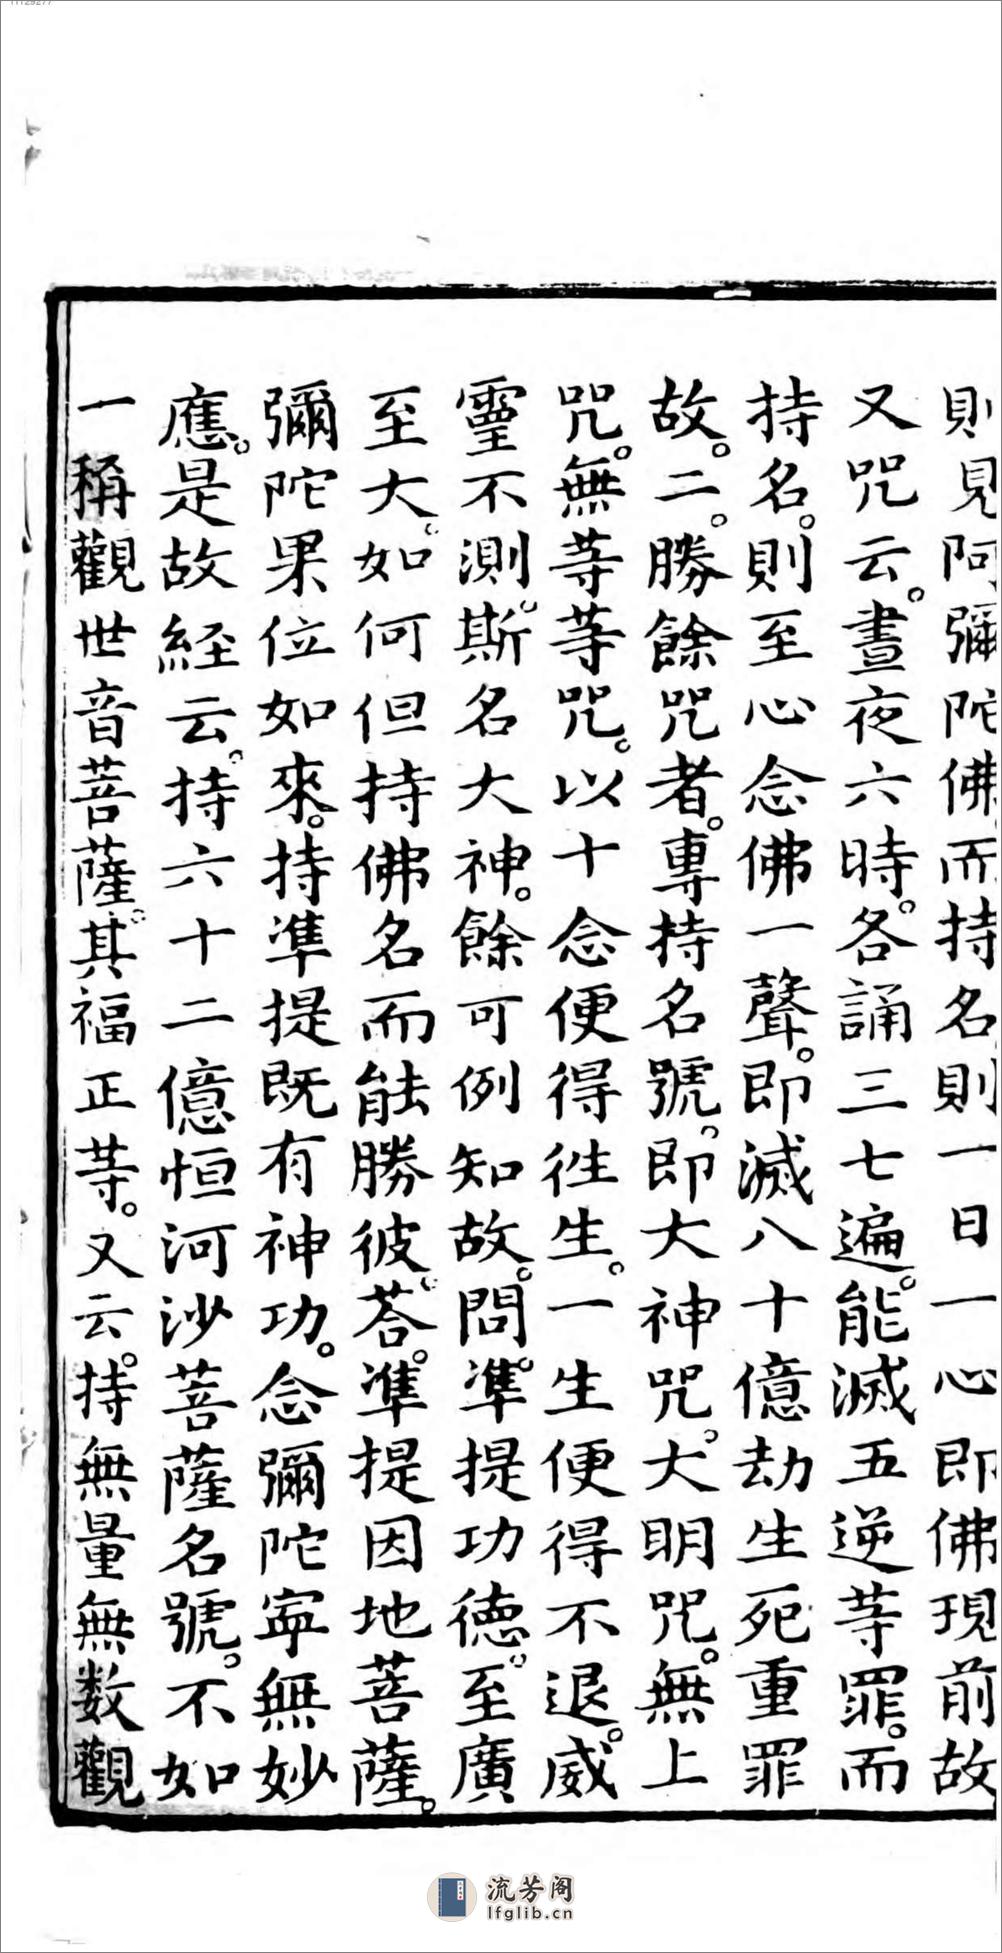 則見阿彌陀佛而持名則一日一心即佛現前故
又咒云。晝夜六時。各誦三七遍。能滅五逆等罪。而
持名。則至心念佛一聲。即滅八十億劫生死重罪
故。二。勝餘咒者。專持名號。即大神咒。大明咒。無上
咒。無等等咒。以十念便得徃生。一生便得不退。威
靈不測。斯名大神。餘可例知故。問。準提功德。至廣
至大。如何但持佛名而能勝彼。荅。準提因地菩薩。
彌陀果位如來。持準提既有神功。念彌陀寧無妙
應。是故經云。持六十二億恒河沙菩薩名號。不如
一稱觀世音菩薩。其福正等。又云。持無量無数觀
流芳阁
lfglib.cn